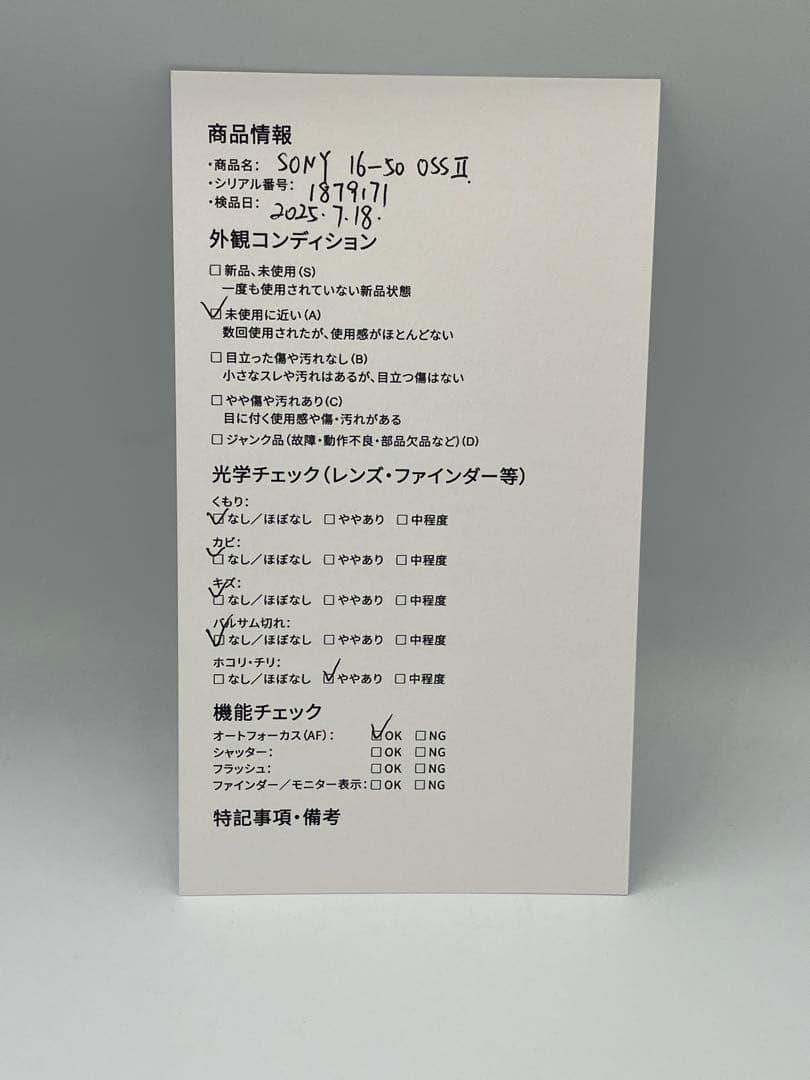 商品情報
・商品名： SONY 16-50 OSSⅡ.
・シリアル番号： 1879171
・検品日： 2025.7.18.
外観コンディション
□ 新品、未使用（S）
一度も使用されていない新品状態
☑ 未使用に近い（A）
数回使用されたが、使用感がほとんどない
□ 目立った傷や汚れなし（B）
小さなスレや汚れはあるが、目立つ傷はない
□ やや傷や汚れあり（C）
目に付く使用感や傷・汚れがある
□ ジャンク品（故障・動作不良・部品欠品など）（D）
光学チェック（レンズ・ファインダー等）
くもり：
☑ なし／ほぼなし □ ややあり □ 中程度
カビ：
☑ なし／ほぼなし □ ややあり □ 中程度
キズ：
☑ なし／ほぼなし □ ややあり □ 中程度
バルサム切れ：
☑ なし／ほぼなし □ ややあり □ 中程度
ホコリ・チリ：
□ なし／ほぼなし ☑ ややあり □ 中程度
機能チェック
オートフォーカス（AF）： ☑ OK □ NG
シャッター： □ OK □ NG
フラッシュ： □ OK □ NG
ファインダー／モニター表示： □ OK □ NG
特記事項・備考